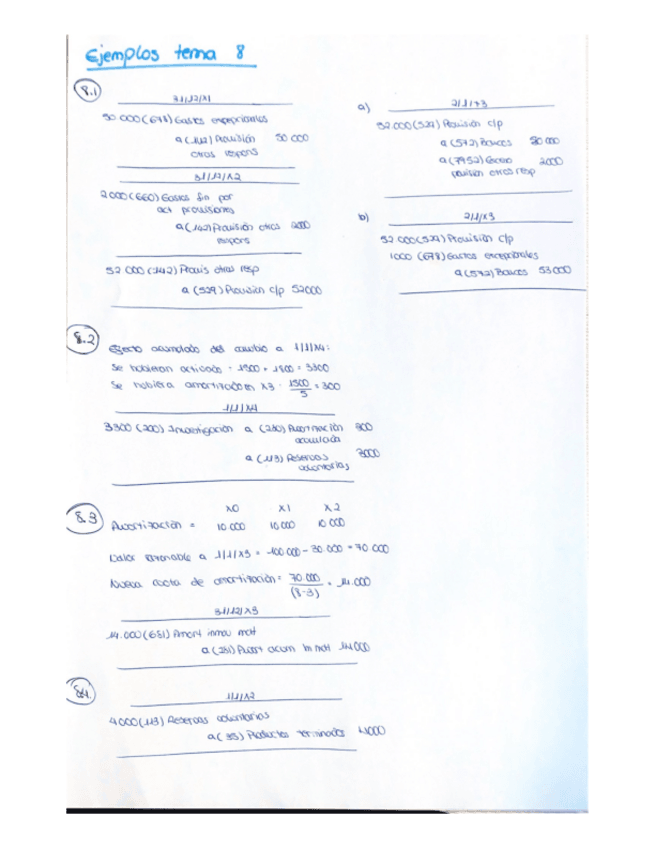 Ejemplos tema 8
8.1
31/12/X1
50 000 (678) Gastos excepcionales
a (142) Provisión 50 000
otras respons
31/12/X2
2000 (660) Gastos fin por
act provisiones
a (142) Provisión otras 2000
respons
52 000 (142) Provis otras resp
a (529) Provisión c/p 52000
a) 2/1/X3
52.000 (529) Provisión c/p
a (572) Bancos 50 000
a (7952) Exceso 2000
provisión otras resp
b) 2/1/X3
52 000 (529) Provisión c/p
1000 (678) Gastos excepcionales
a (572) Bancos 53 000
8.2
Efecto acumulado del cambio a 1/1/X4:
Se hubieran activado = 1500 + 1800 = 3300
Se hubiera amortizado en X3 = 1500/5 = 300
1/1/X4
3300 (200) Investigación a (280) Amortización 300
acumulada
a (113) Reservas 3000
voluntarias
8.3
X0 X1 X2
Amortización = 10 000 10 000 10 000
Valor razonable a 1/1/X3 = 100.000 - 30.000 = 70 000
Nueva cuota de amortización = 70 000/(8-3) = 14.000
31/12/X3
14.000 (681) Amort inmov mat
a (281) Amort acum in mat 14000
8.4
1/1/X2
4000 (113) Reservas voluntarias
a (35) Productos terminados 4000